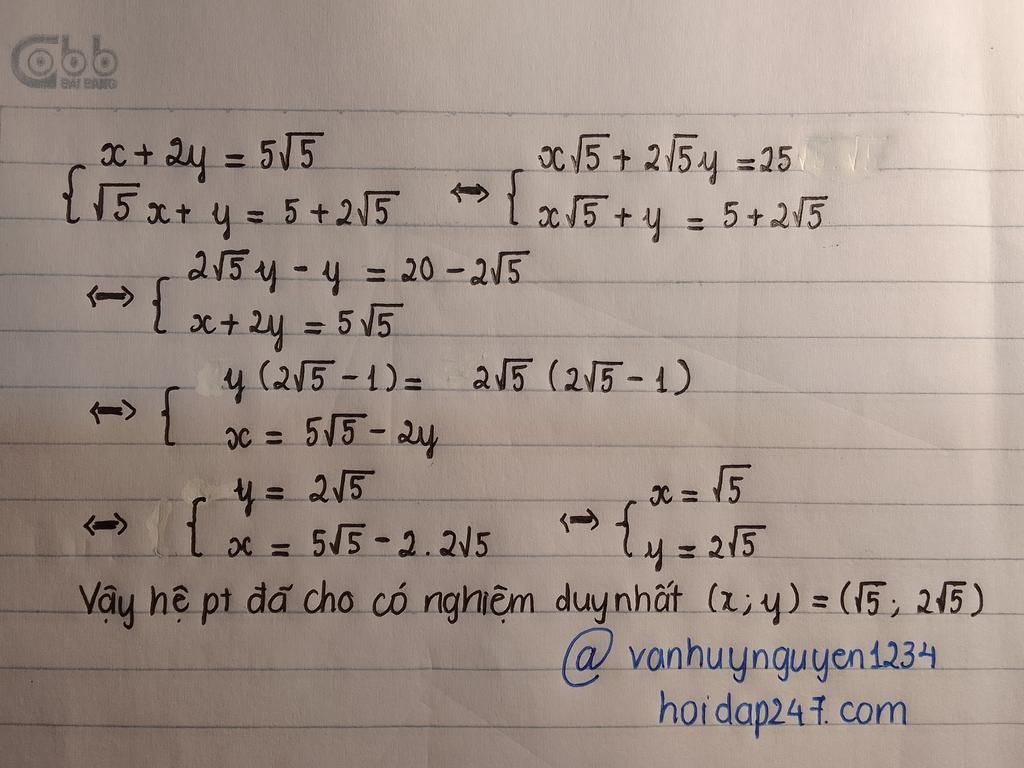 Cobb
BÃI BẰNG
{ x + 2y = 5√5 ⟷ { x√5 + 2√5y = 25
√5 x + y = 5 + 2√5 x√5 + y = 5 + 2√5
⟷ { 2√5 y - y = 20 - 2√5
x + 2y = 5√5
⟷ { y (2√5 - 1) = 2√5 (2√5 - 1)
x = 5√5 - 2y
⟷ { y = 2√5 ⟷ { x = √5
x = 5√5 - 2.2√5 y = 2√5
Vậy hệ pt đã cho có nghiệm duy nhất (x; y) = (√5; 2√5)
@ vanhuynguyen1234
hoidap247.com